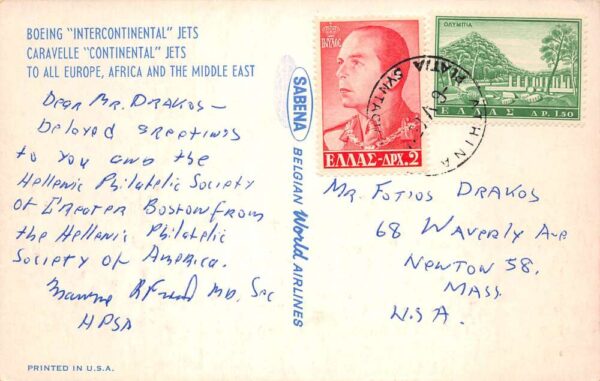 BOEING "INTERCONTINENTAL" JETS
CARAVELLE "CONTINENTAL" JETS
TO ALL EUROPE, AFRICA AND THE MIDDLE EAST
Dear Mr. Drakos –
beloved greetings
to you and the
Hellenic Philatelic Society
of Greater Boston from
the Hellenic Philatelic
Society of America.
MD, Sec
HPSA
PRINTED IN U.S.A.
SABENA BELGIAN World AIRLINES
ΠΑΥΛΟΣ
ΕΛΛΑΣ-ΔΡΧ.2
ΟΛΥΜΠΙΑ
ΕΛΛΑΣ ΔΡ.1.50
ATHINAI
PLATIA SYNTAGM
Mr. Fotios Drakos
68 Waverly Ave
Newton 58.
Mass
U.S.A.